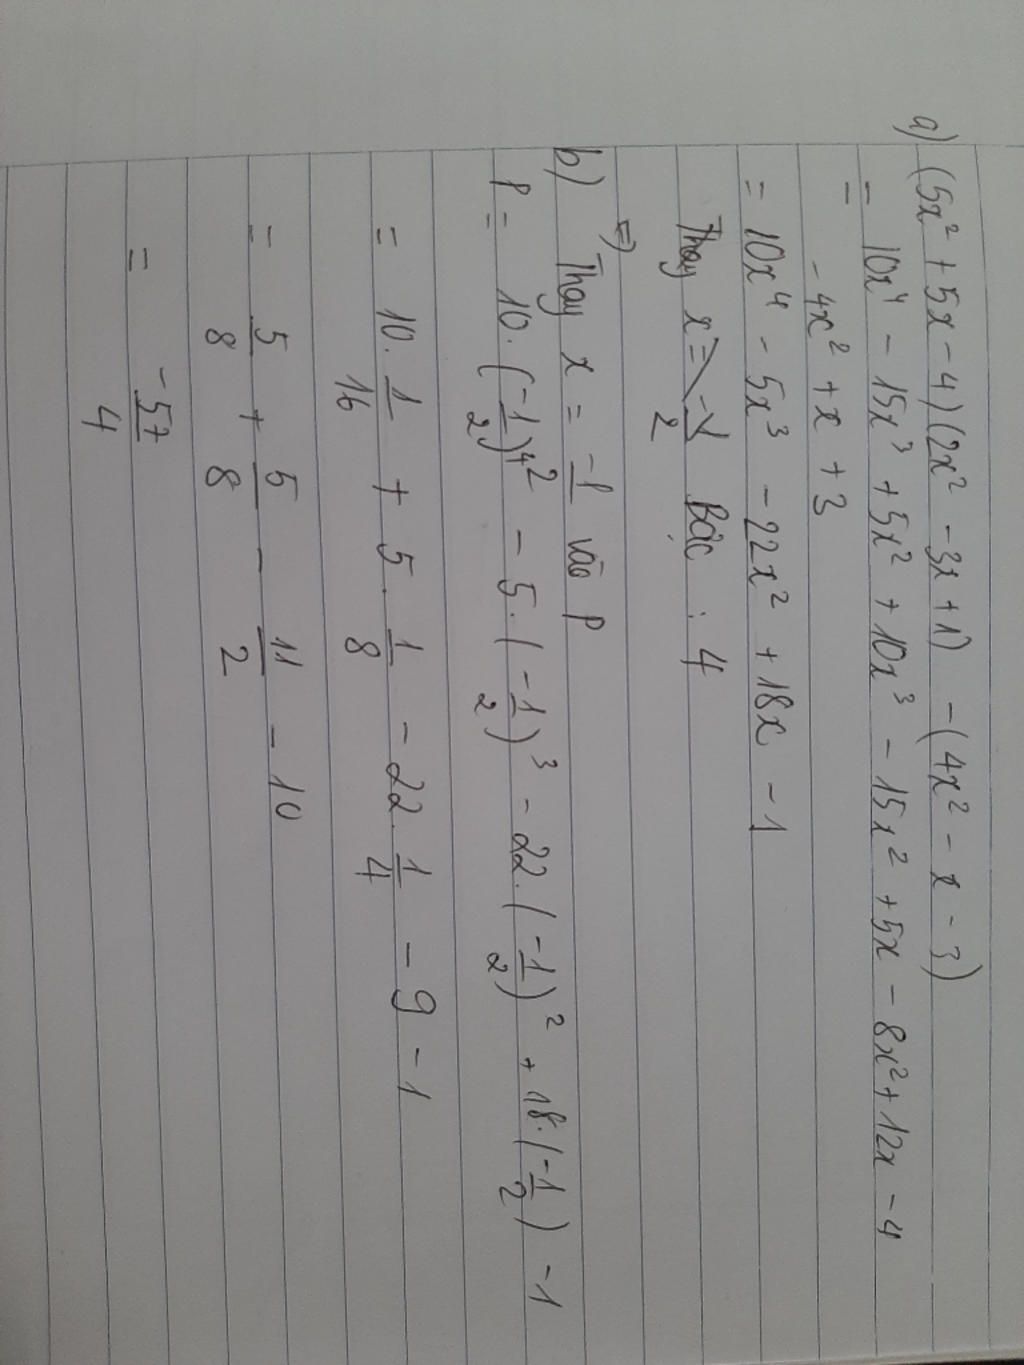 a) (5x² + 5x - 4)(2x² - 3x + 1) - (4x² - x - 3)
= 10x⁴ - 15x³ + 5x² + 10x³ - 15x² + 5x - 8x² + 12x - 4
- 4x² + x + 3
= 10x⁴ - 5x³ - 22x² + 18x - 1
Bậc : 4
=)
b) Thay x = -1/2 vào P
P = 10.(-1/2)⁴ - 5.(-1/2)³ - 22.(-1/2)² + 18.(-1/2) - 1
= 10.1/16 + 5.1/8 - 22.1/4 - 9 - 1
= 5/8 + 5/8 - 11/2 - 10
= -57/4